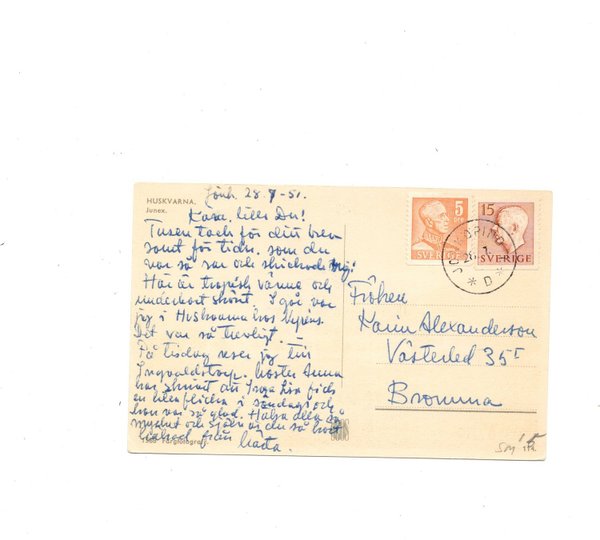 HUSKVARNA.
Junex.
Jönk. 28.7-51.
Kära lilla Du!
Tusen tack för ditt brev
samt för tidn. som du
var så rar och skickade mig!
Här är tropisk värme och
underbart skönt. I går var
jag i Huskvarna hos
Det var så trevligt. –
På tisdag reser jag till
Ingvaldstorp. Moster Anna
har skrivit att Inga Lisa fick
en liten flicka i söndags och
hon var så glad. Hälsa alla så
mycket och själv är du så
hälsad från
1568 Färgfotografi.
5
ÖRE
SVERIGE
15
SVERIGE
JÖNKÖPING
D
Fröken
Karin Alexanderson
Västerled 35
Bromma